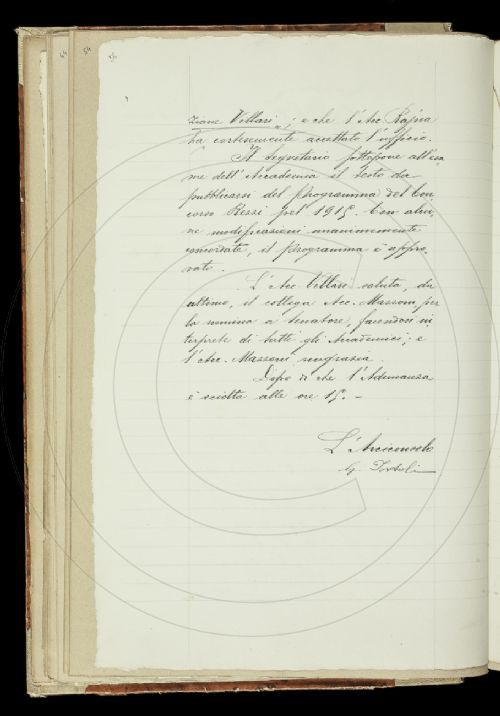 zione Villari„; e che l'Acc. Rajna
ha cortesemente accettato l'ufficio.
Il Segretario sottopone all'esa-
me dell'Accademia il testo da
pubblicarsi del programma del Con-
corso Rezzi pel 1915. Con alcu-
ne modificazioni unanimemente
concordate, il programma è appro-
vato.
L'Acc. Villari saluta, da
ultimo, il collega Acc. Mazzoni per
la nomina a Senatore, facendosi in-
terprete di tutti gli Accademici; e
l'Acc. Mazzoni ringrazia.
Dopo di che l'Adunanza
è sciolta alle ore 15. –
L'Arciconsolo
G. Tortoli